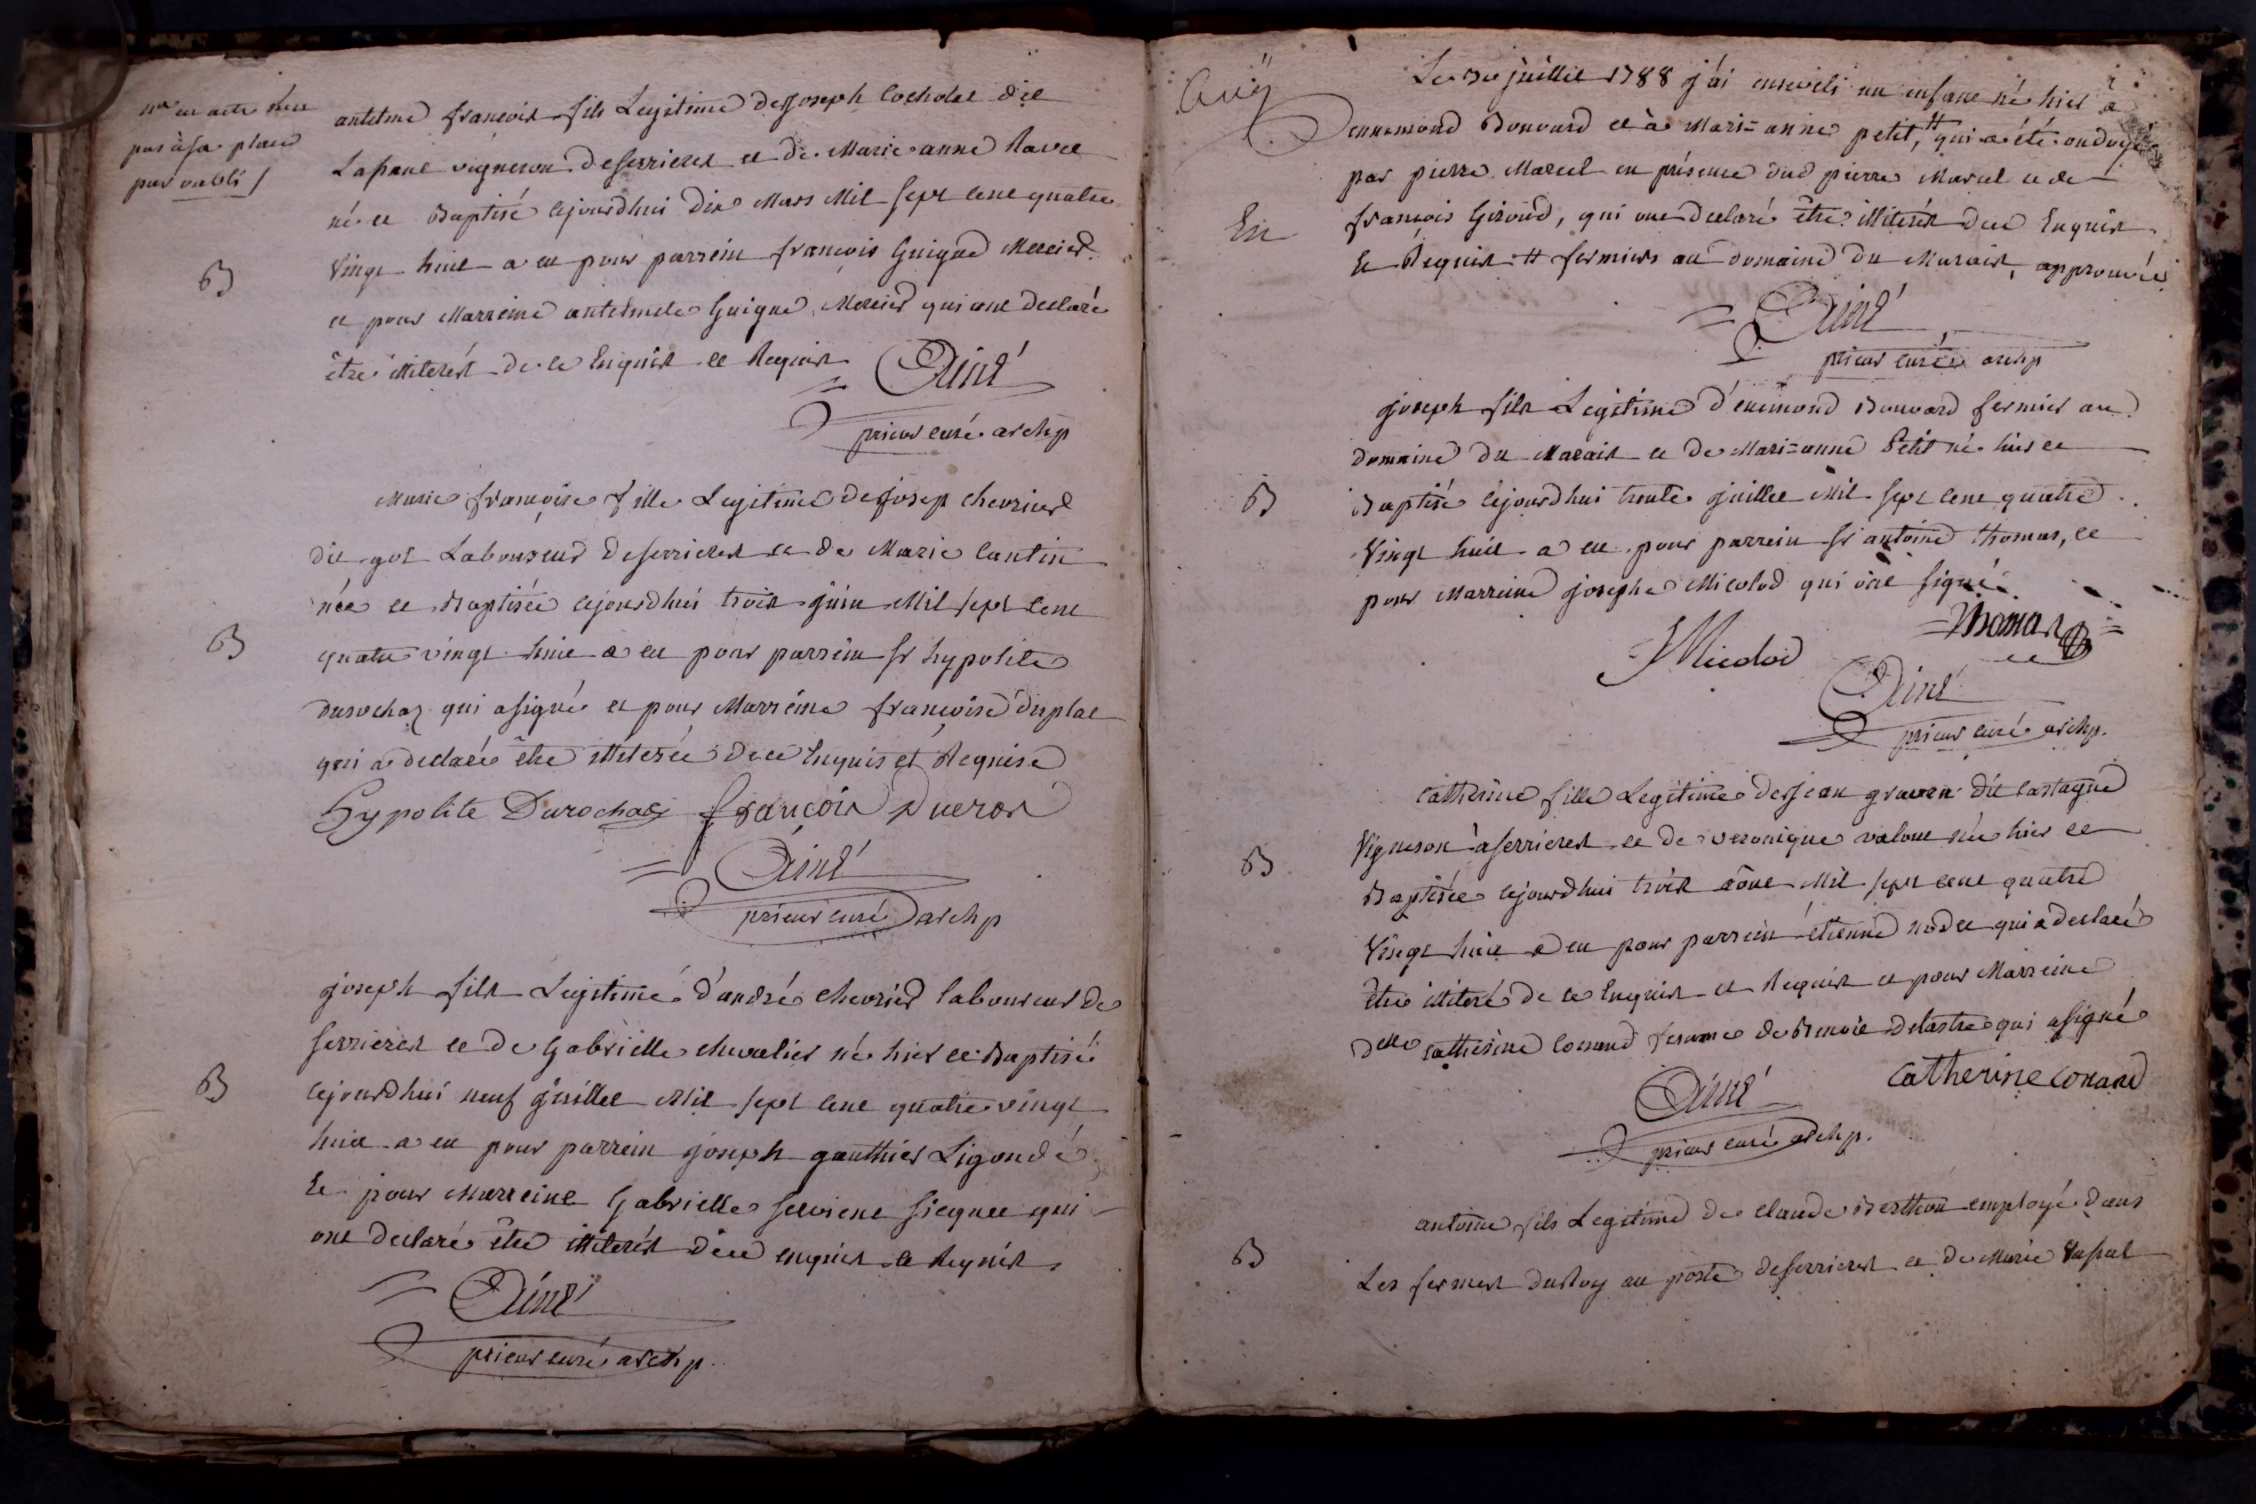 n.ª cet acte n'est
pas à sa place
par oubli /
antelme françois fils Legitime de Joseph Cocholat dit
Lapane vigneron de serrieres et de Marie anne Ravet
né et Baptisé cejourdhui dix Mars Mil sept cent quatre
B
vingt huit a eu pour parrein françois Guigue Mercier
et pour Marreine antelmete Guigue Mercier qui ont declaré
être illiterés de ce Enquis et Requis
Ainé
prieur curé archp
Marie françoise fille Legitime de josep chevrier
dit got Laboureur de serrieres et de Marie Cantin
née et Baptisée cejourdhui trois juin Mil sept cent
B
quatre vingt huit a eu pour parrein sr hypolite
durochaz qui a signé et pour Marreine françoise duplat
qui a declaré être illiterée de ce Enquis et Requise
Hypolite Durochaz françois Ducros
Ainé
prieur curé archp
joseph fils Legitime d'andré chevrier laboureur de
serrieres et de Gabrielle chevalier né hier et Baptisé
B
cejourdhui neuf juillet Mil sept cent quatre vingt
huit a eu pour parrein joseph gauthier Ligondé
Et pour Marreine Gabrielle qui
ont declaré être illiterés de ce enquis et Requis
Ainé
prieur curé archp.
Le 30e juillet 1788 j'ai enseveli un enfant né hier à
Ennemond Bouvard et à Marie=anne petit, # qui a été ondoyé
par pierre Marcel en présence dud pierre Marcel et de
En
françois Giroud, qui ont declaré être illiterés de ce Enquis
Et Requis # fermiers au domaine du Marais, approuvée
Ainé
prieur curé archp
joseph fils Legitime d'enemond Bouvard fermier au
domaine du Marais et de Marie=anne Petit né hier et
B
Baptisé cejourdhui trente juillet Mil sept cent quatre
Vingt huit a eu pour parrein sr antoine thomas, et
pour Marreine josephe Micolod qui ont signé
Thomas
J Micolod
Ainé
prieur curé archp.
Catherine fille Legitime de jean graven dit Castagne
Vigneron à serrieres et de veronique valout née hier et
B
Baptisée cejourdhui trois août Mil sept cent quatre
Vingt huit a eu pour parrein étienne nodet qui a declaré
être illiteré de ce Enquis et Requis et pour Marreine
delle Catherine Conand femme de Benoit Delastre qui a signé
Catherine Conand
Ainé
prieur curé archp.
antoine fils Legitime de claude Berthon employé dans
B
Les fermes du Roy au poste de serrieres et de Marie